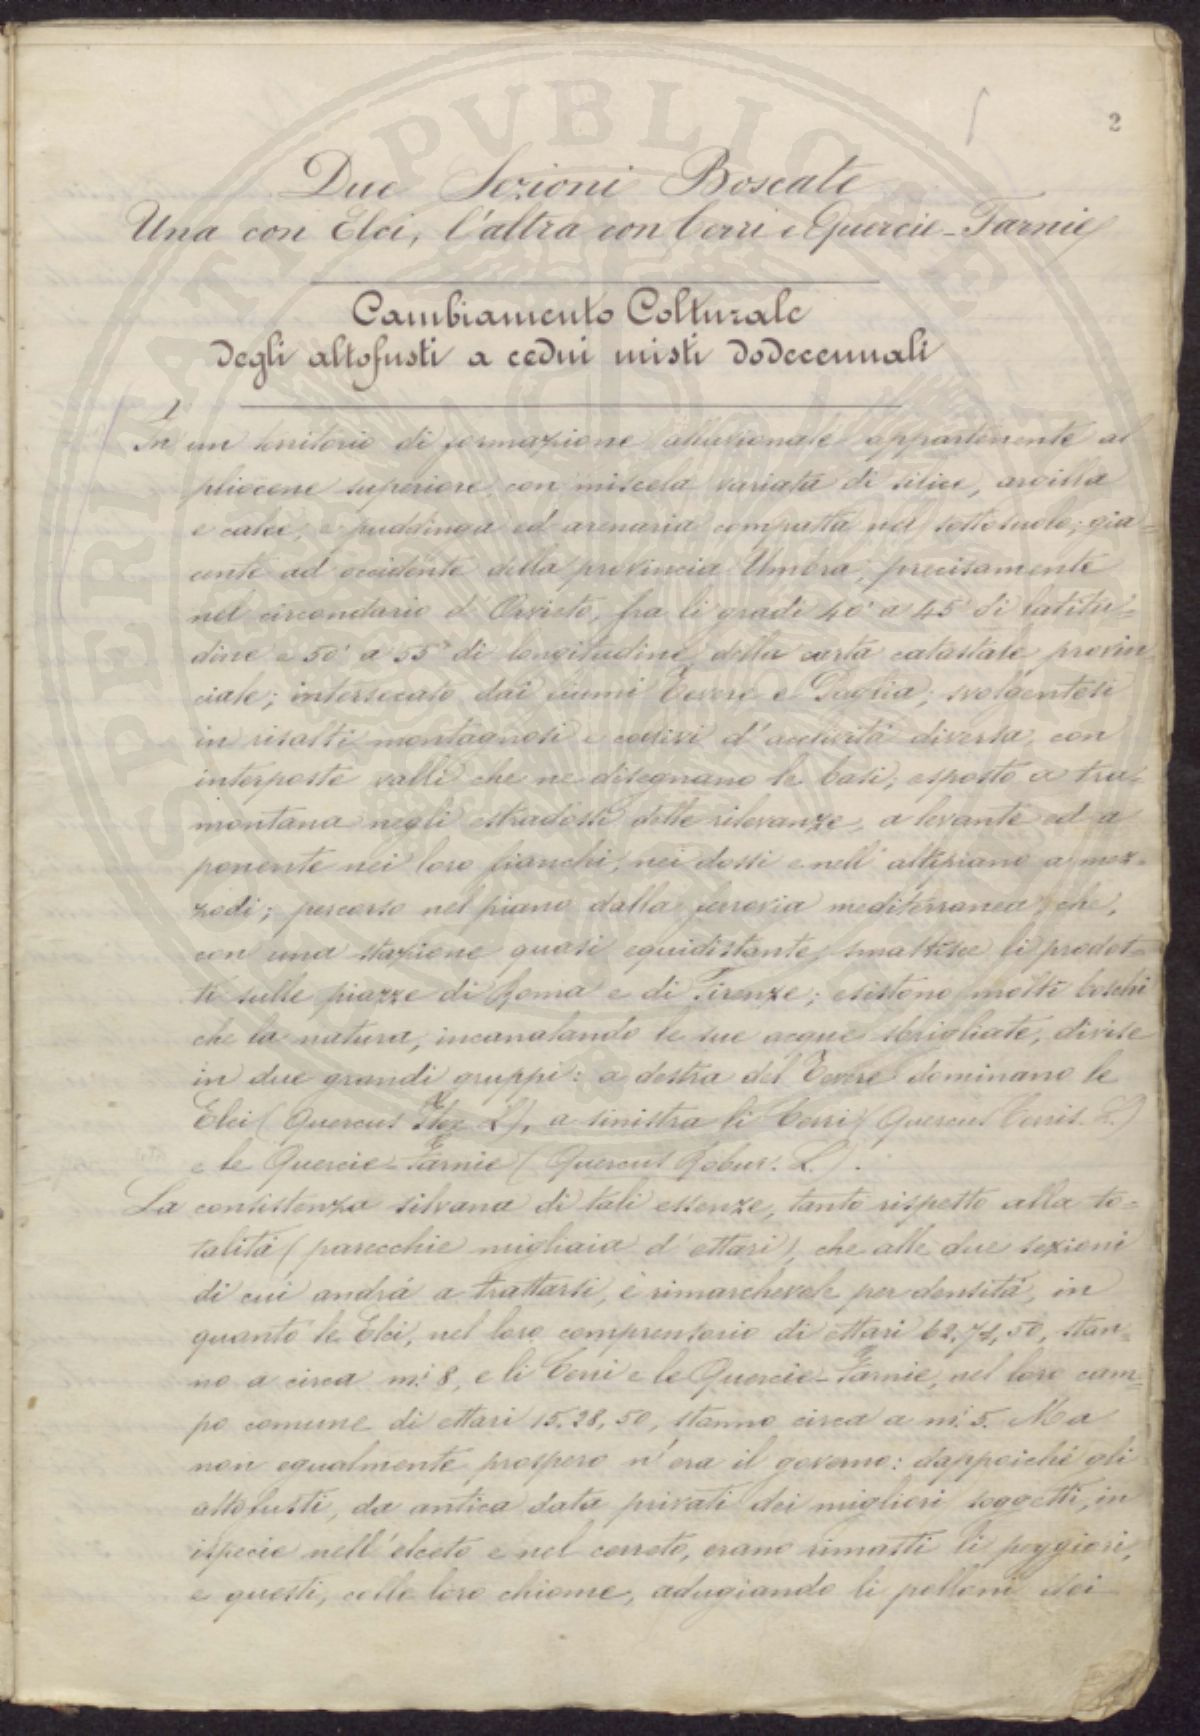 2
Due Sezioni Boscate
Una con Elci, l'altra con Cerri e Quercie-Farnie
Cambiamento Colturale
degli altofusti a cedui misti dodecennali
1
In un territorio di formazione alluvionale appartenente al
pliocene superiore, con miscela variata di silice, arcilla
e calce, e puddinga ed arenaria compatta nel sottosuolo; gia=
cente ad occidente della provincia Umbra, precisamente
nel circondario d'Orvieto, fra li gradi 40' a 45' di latitu=
dine e 50' a 55' di longitudine della carta catastale provin=
ciale; intersecato dai fiumi Tevere e Paglia; svolgentesi
in risalti montagnosi e cedivi d'acclività diversa, con
interposte valli che ne disegnano le basi; esposto a tra=
montana negli estradossi delle rilevanze, a levante ed a
ponente nei loro fianchi, nei dossi e nell'altipiano a mez=
zodi; percorso nel piano dalla ferrovia mediterranea, che,
con una stazione quasi equidistante, smaltisce li prodot=
ti sulle piazze di Roma e di Firenze; esistono molti boschi
che la natura, incanalando le sue acque sbrigliate, divise
in due grandi gruppi: a destra del Tevere dominano le
Elci (Quercus Ilex L), a sinistra li Cerri (Quercus Cerris. L.)
e le Quercie-Farnie (Quercus Robur. L.).
La consistenza silvana di tali essenze, tanto rispetto alla to=
talità (parecchie migliaia d'ettari), che alle due sezioni
di cui andrà a trattarsi, è rimarchevole per densità, in
quanto le Elci, nel loro comprensorio di ettari 62,71,50, stan=
no a circa m.i 8, e li Cerri e le Quercie-Farnie, nel loro cam=
po comune di ettari 15.28,50, stanno circa a m.i 5. Ma
non egualmente prospero n'era il governo: dappoichè gli
altofusti, da antica data privati dei migliori soggetti, in
ispecie nell'elceto e nel cerreto, erano rimasti li peggiori,
e questi, colle loro chiome, aduggiando li polloni dei